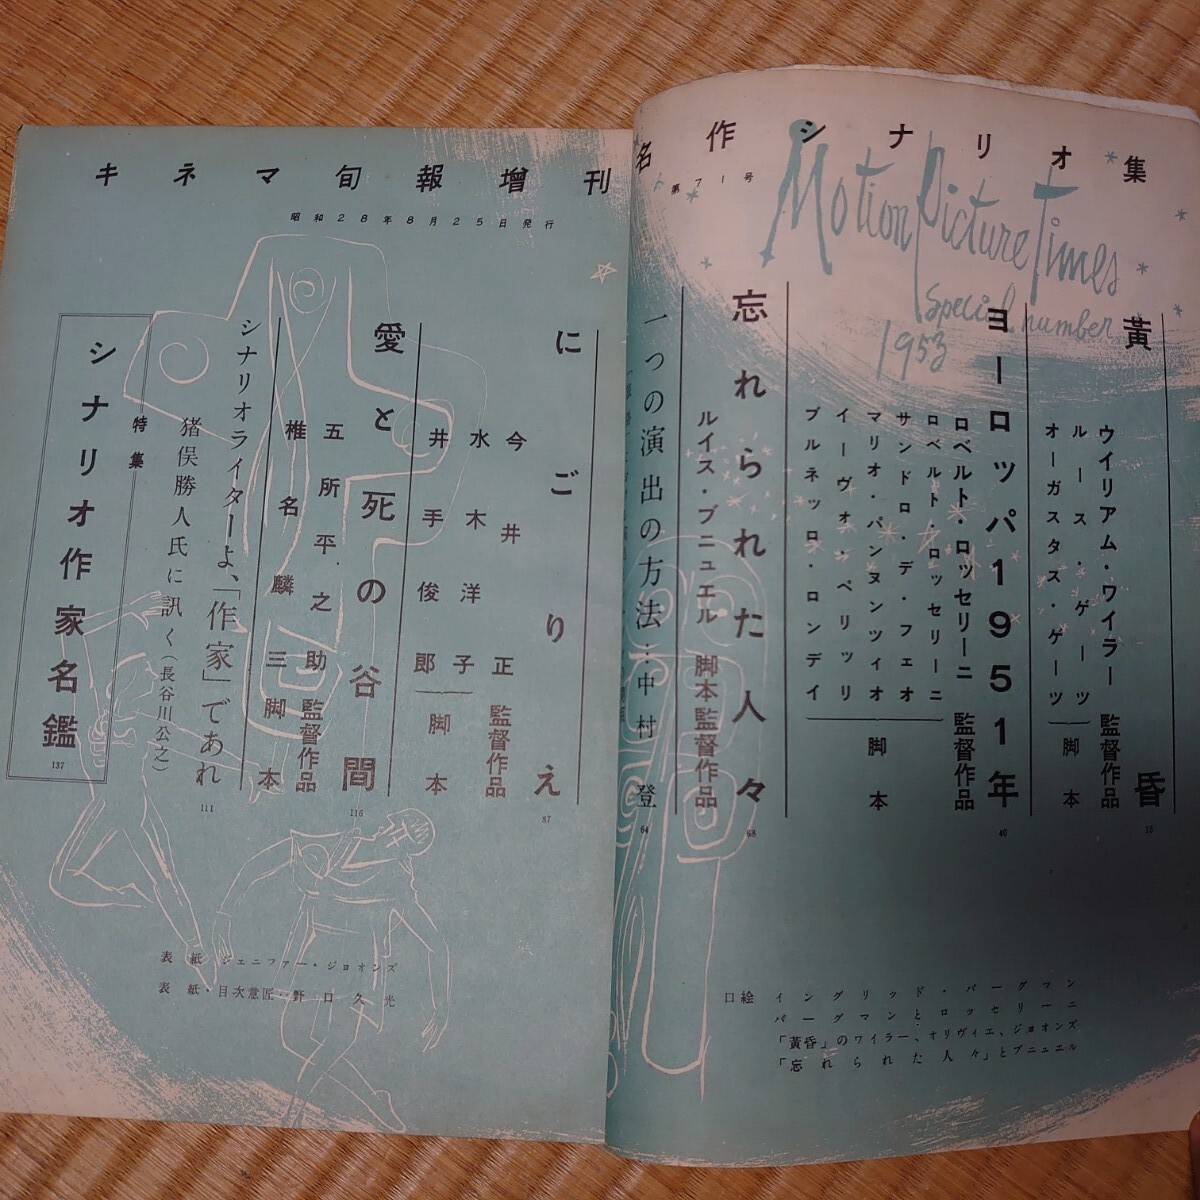 キネマ旬報増刊
名作シナリオ集
昭和28年8月25日発行
第71号
Motion Picture Times
Special number
1953
黄昏
ウイリアム・ワイラー 監督作品
ルース・ゲーツ
オーガスタス・ゲーツ
脚本
15
ヨーロッパ1951年
ロベルト・ロッセリーニ 監督作品
ロベルト・ロッセリーニ
サンドロ・デ・フェオ
マリオ・パンヌンツィオ
イーヴォ・ペリッリ
ブルネッロ・ロンデイ
脚本
40
忘れられた人々
ルイス・ブニュエル 脚本監督作品
68
一つの演出の方法…中村登
64
にごりえ
今井正 監督作品
水木洋子
井手俊郎
脚本
87
愛と死の谷間
五所平之助 監督作品
椎名麟三 脚本
116
シナリオライターよ、「作家」であれ
猪俣勝人氏に訊く(長谷川公之)
111
特集
シナリオ作家名鑑
137
表紙 ジェニファー・ジョオンズ
表紙・目次意匠・野口久光
口絵 イングリッド・バーグマン
バーグマンとロッセリーニ
「黄昏」のワイラー、オリヴィエ、ジョオンズ
「忘れられた人々」とブニュエル